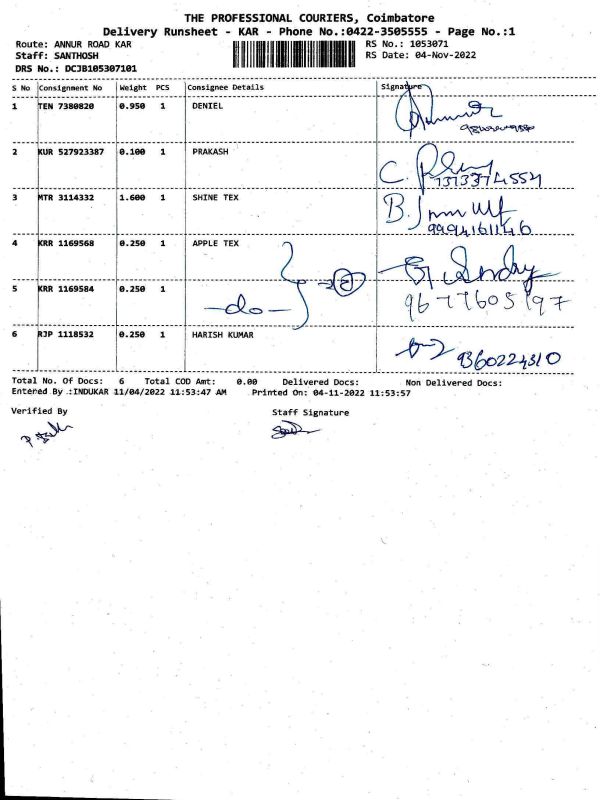 THE PROFESSIONAL COURIERS, Coimbatore
Delivery Runsheet - KAR - Phone No.:0422-3505555 - Page No.:1
Route: ANNUR ROAD KAR RS No.: 1053071
Staff: SANTHOSH RS Date: 04-Nov-2022
DRS No.: DCJB105307101
S No Consignment No Weight PCS Consignee Details Signature
1 TEN 7380820 0.950 1 DENIEL
2 KUR 527923387 0.100 1 PRAKASH C.
3 MTR 3114332 1.600 1 SHINE TEX B.
9994161146
4 KRR 1169568 0.250 1 APPLE TEX
5 KRR 1169584 0.250 1 -do- 9677605197
6 RJP 1118532 0.250 1 HARISH KUMAR 9360224310
Total No. Of Docs: 6 Total COD Amt: 0.00 Delivered Docs: Non Delivered Docs:
Entered By :INDUKAR 11/04/2022 11:53:47 AM Printed On: 04-11-2022 11:53:57
Verified By Staff Signature